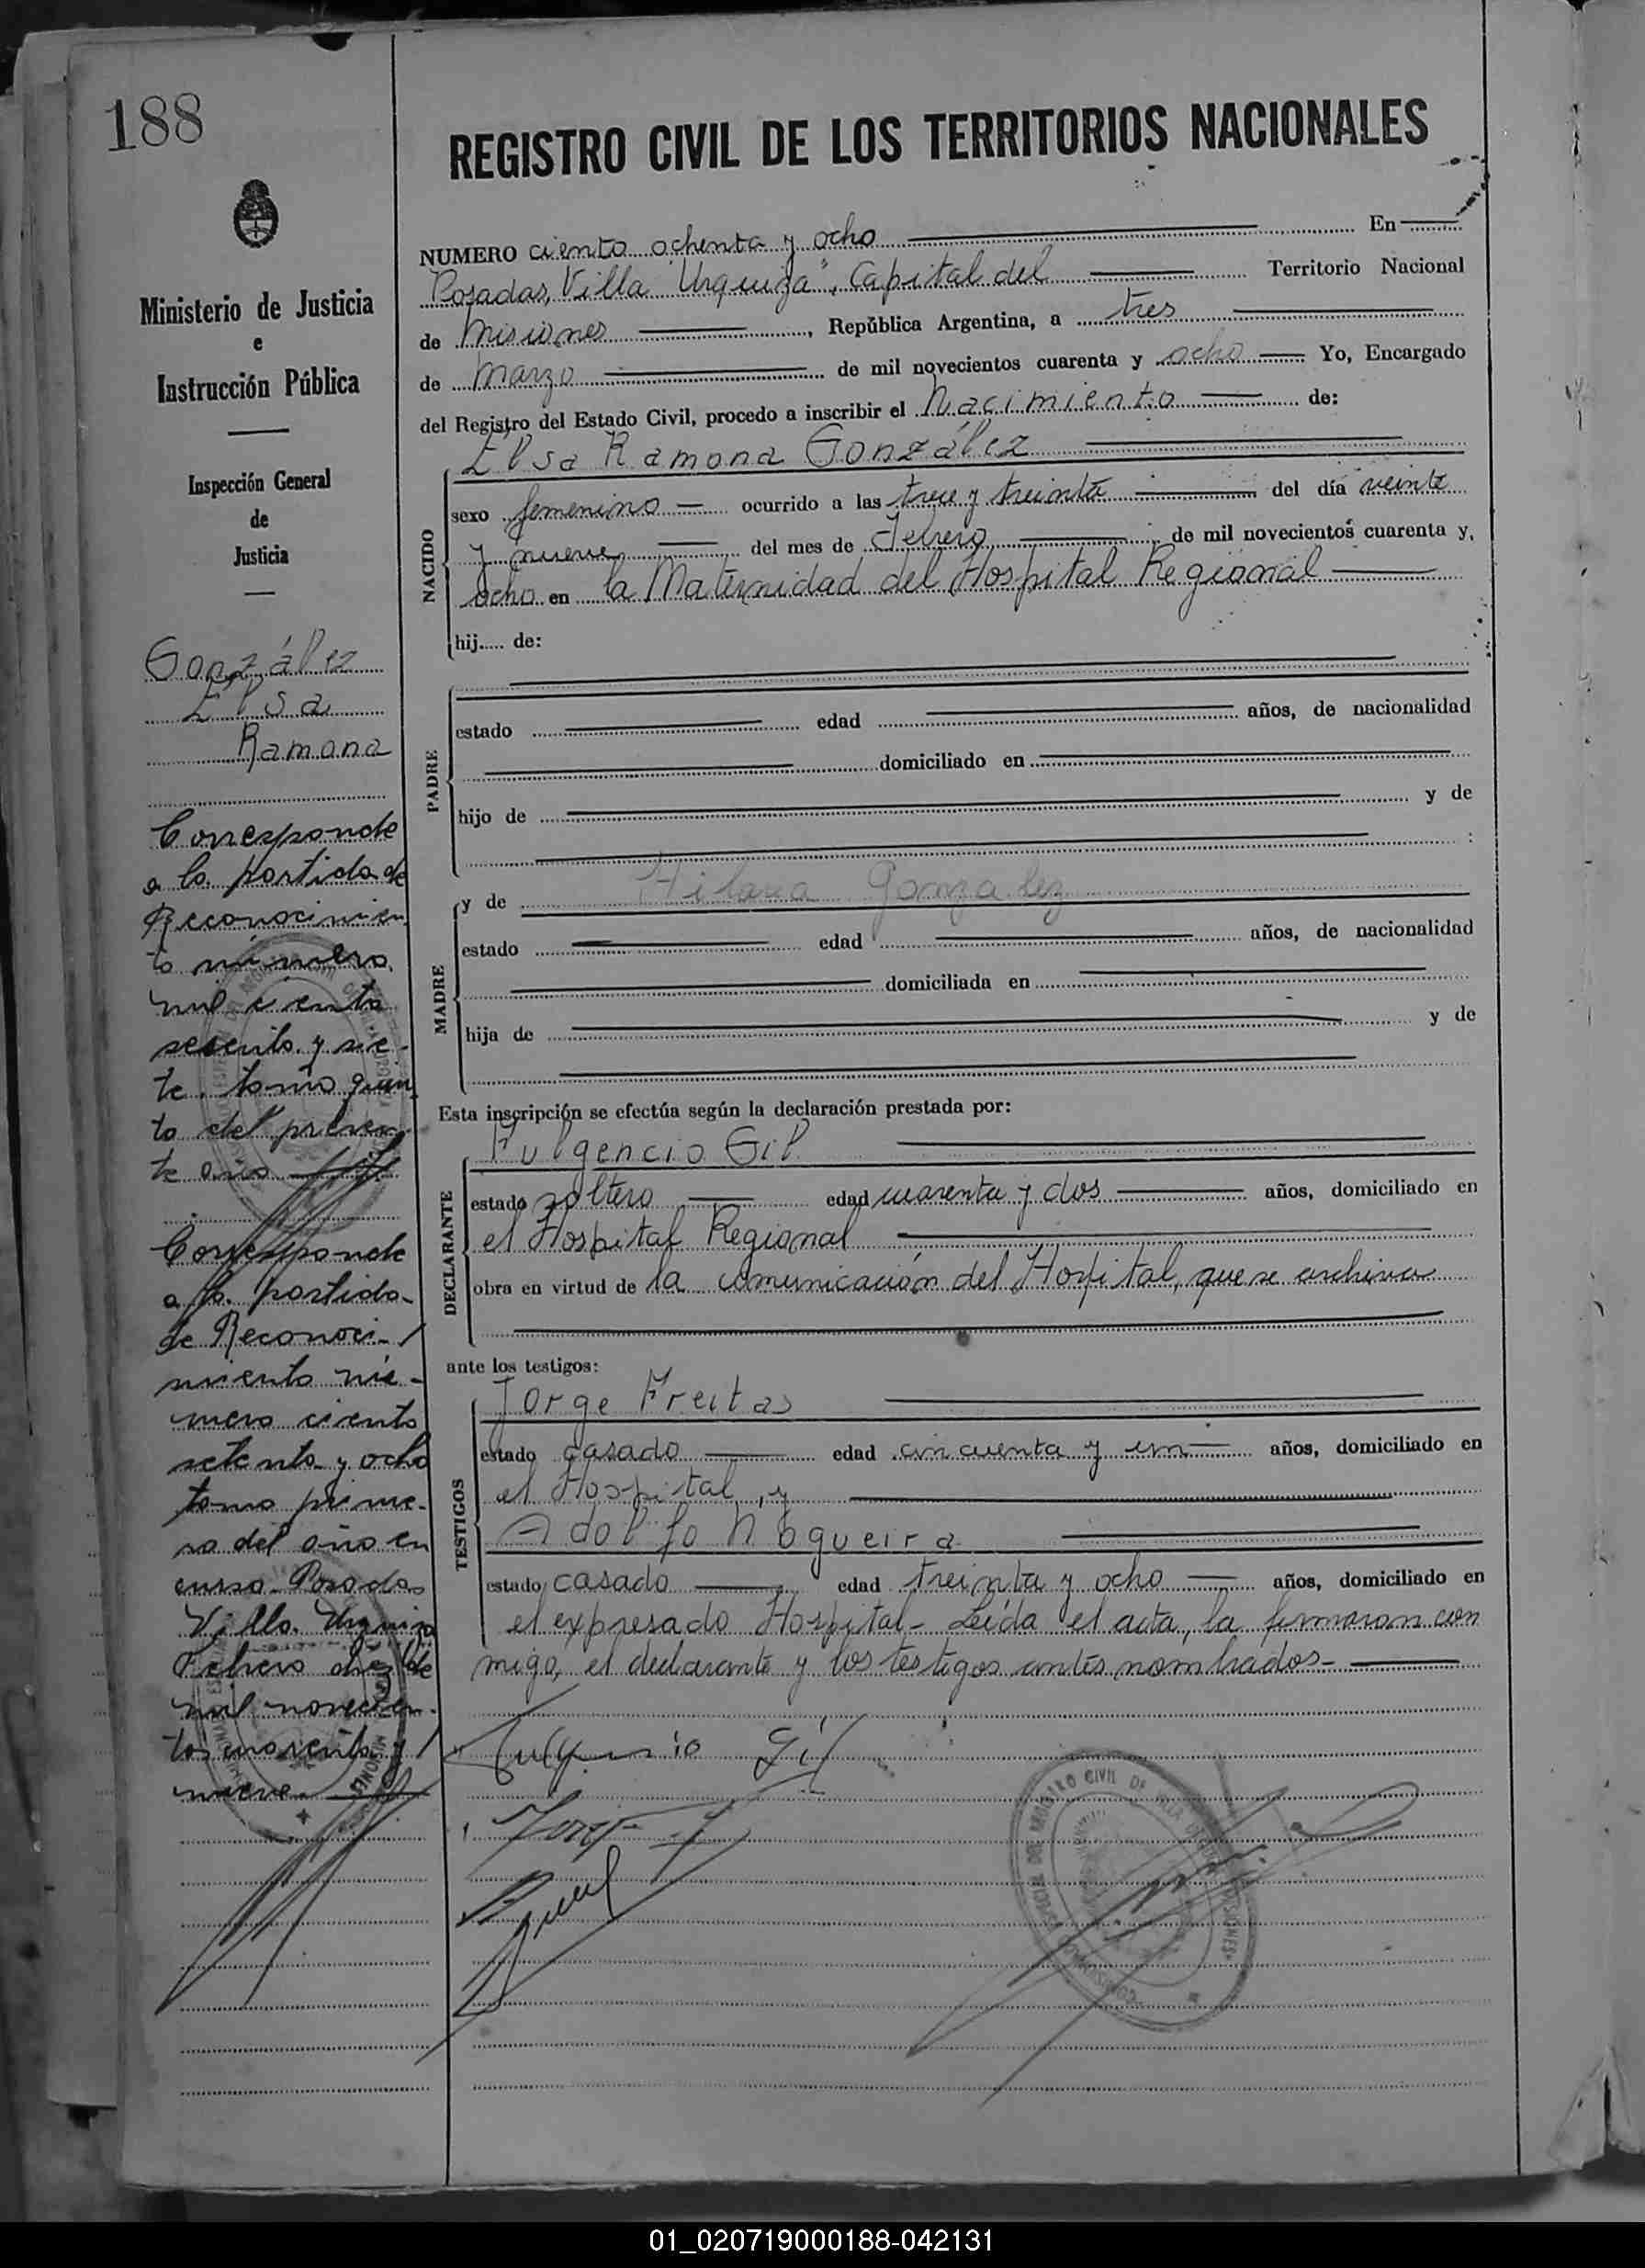 188
REGISTRO CIVIL DE LOS TERRITORIOS NACIONALES
Ministerio de Justicia
e
Instrucción Pública
Inspección General
de
Justicia
González
Elsa
Ramona
Corresponde
a la partida de
Reconocimien
to número
mil ciento
sesenta y sie-
te tomo quin
to del presen-
te año
Corresponde
a la partida
de Reconoci-
miento nú-
mero ciento
setenta y ocho
tomo prime-
ro del año en
curso - Posadas
Villa Urquiza
Febrero diez de
mil novecien-
tos cuarenta y
nueve.
NUMERO ciento ochenta y ocho En
Posadas, Villa "Urquiza", Capital del Territorio Nacional
de Misiones, República Argentina, a tres
de Marzo de mil novecientos cuarenta y ocho Yo, Encargado
del Registro del Estado Civil, procedo a inscribir el Nacimiento de:
NACIDO
Elsa Ramona González
sexo femenino ocurrido a las trece y treinta del día veinte
y nueve del mes de Febrero de mil novecientos cuarenta y,
ocho en la Maternidad del Hospital Regional
hij..... de:
PADRE
estado edad años, de nacionalidad
domiciliado en
hijo de y de
:
MADRE
y de Hilaria Gonzalez
estado edad años, de nacionalidad
domiciliada en
hija de y de
Esta inscripción se efectúa según la declaración prestada por:
DECLARANTE
Fulgencio Gil
estado soltero edad cuarenta y dos años, domiciliado en
el Hospital Regional
obra en virtud de la comunicación del Hospital, que se archiva
ante los testigos:
TESTIGOS
Jorge Freitas
estado casado edad cincuenta y un años, domiciliado en
el Hospital, y
Adolfo Nogueira
estado casado edad treinta y ocho años, domiciliado en
el expresado Hospital - Leída el acta, la firmaron con
migo, el declarante y los testigos antes nombrados -
Fulgencio Gil
REGISTRO CIVIL DE VILLA URQUIZA
MISIONES
01_020719000188-042131